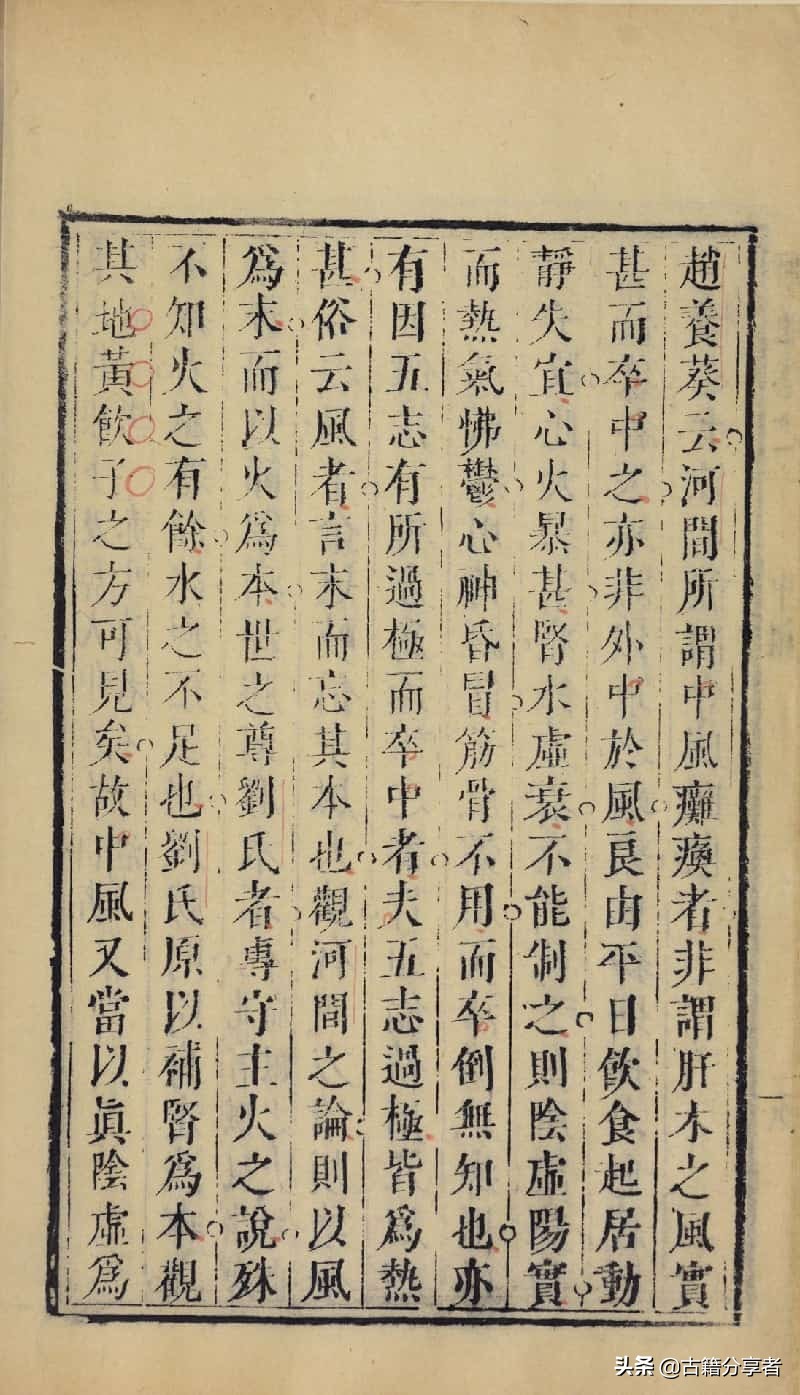 趙養葵云河間所謂中風癱瘓者非謂肝木之風實
甚而卒中之亦非外中於風良由平日飲食起居動
靜失宜心火暴甚腎水虛衰不能制之則陰虛陽實
而熱氣怫鬱心神昏冒筋骨不用而卒倒無知也亦
有因五志有所過極而卒中者夫五志過極皆為熱
甚俗云風者言末而忘其本也觀河間之論則以風
為末而以火為本世之尊劉氏者專守主火之說殊
不知火之有餘水之不足也劉氏原以補腎為本觀
其地黃飲子之方可見矣故中風又當以眞陰虛為
头条 @古籍分享者